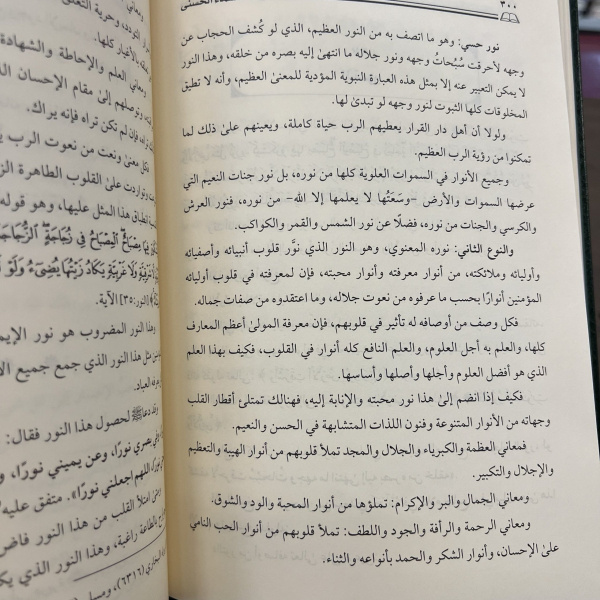 ٣٠٠
نور حسي: وهو ما اتصف به من النور العظيم، الذي لو كُشف الحجاب عن
وجهه لأحرقت سُبُحاتُ وجهه ونور جلاله ما انتهىٰ إليه بصره من خلقه، وهذا النور
لا يمكن التعبير عنه إلا بمثل هذه العبارة النبوية المؤدية للمعنىٰ العظيم، وأنه لا تطيق
المخلوقات كلها الثبوت لنور وجهه لو تبدىٰ لها.
ولولا أن أهل دار القرار يعطيهم الرب حياة كاملة، ويعينهم علىٰ ذلك لما
تمكنوا من رؤية الرب العظيم.
وجميع الأنوار في السموات العلوية كلها من نوره، بل نور جنات النعيم التي
عرضها السموات والأرض -وسَعَتُها لا يعلمها إلا الله- من نوره، فنور العرش
والكرسي والجنات من نوره، فضلًا عن نور الشمس والقمر والكواكب.
والنوع الثاني: نوره المعنوي، وهو النور الذي نوَّر قلوب أنبيائه وأصفيائه
وأوليائه وملائكته، من أنوار معرفته وأنوار محبته، فإن لمعرفته في قلوب أوليائه
المؤمنين أنوارًا بحسب ما عرفوه من نعوت جلاله، وما اعتقدوه من صفات جماله.
فكل وصف من أوصافه له تأثير في قلوبهم، فإن معرفة المولىٰ أعظم المعارف
كلها، والعلم به أجل العلوم، والعلم النافع كله أنوار في القلوب، فكيف بهذا العلم
الذي هو أفضل العلوم وأجلها وأصلها وأساسها.
فكيف إذا انضم إلىٰ هذا نور محبته والإنابة إليه، فهنالك تمتلئ أقطار القلب
وجهاته من الأنوار المتنوعة وفنون اللذات المتشابهة في الحسن والنعيم.
فمعاني العظمة والكبرياء والجلال والمجد تملأ قلوبهم من أنوار الهيبة والتعظيم
والإجلال والتكبير.
ومعاني الجمال والبر والإكرام: تملؤها من أنوار المحبة والود والشوق.
ومعاني الرحمة والرأفة والجود واللطف: تملأ قلوبهم من أنوار الحب النامي
علىٰ الإحسان، وأنوار الشكر والحمد بأنواعه والثناء.
ومعاني
التودد، وحرية التعلق
بالأغيار كلها.
ومعاني العلم والإحاطة والشهادة
وتوصلهم إلىٰ مقام الإحسان
تراه، فإن لم تكن تراه فإنه يراك.
فكل معنىٰ ونعت من نعوت الرب
علىٰ القلوب الطاهرة
هذا المثل عليها، وهو قوله
مِصْبَاحٌ الْمِصْبَاحُ فِي زُجَاجَةٍ الزُّجَاجَةُ
وَلَا غَرْبِيَّةٍ يَكَادُ زَيْتُهَا يُضِيءُ وَلَوْ
[النور: ٣٥] الآية.
وهذا النور المضروب هو نور
مثل هذا النور الذي جمع جميع
العباد.
ﷺ لحصول هذا النور فقال:
بصري نورًا، وعن يميني نورًا،
اللهم اجعلني نورًا». متفق عليه
امتلأ القلب من هذا النور فاض
بالطاعة راغبة، وهذا النور الذي
البخاري (٦٣١٦)،